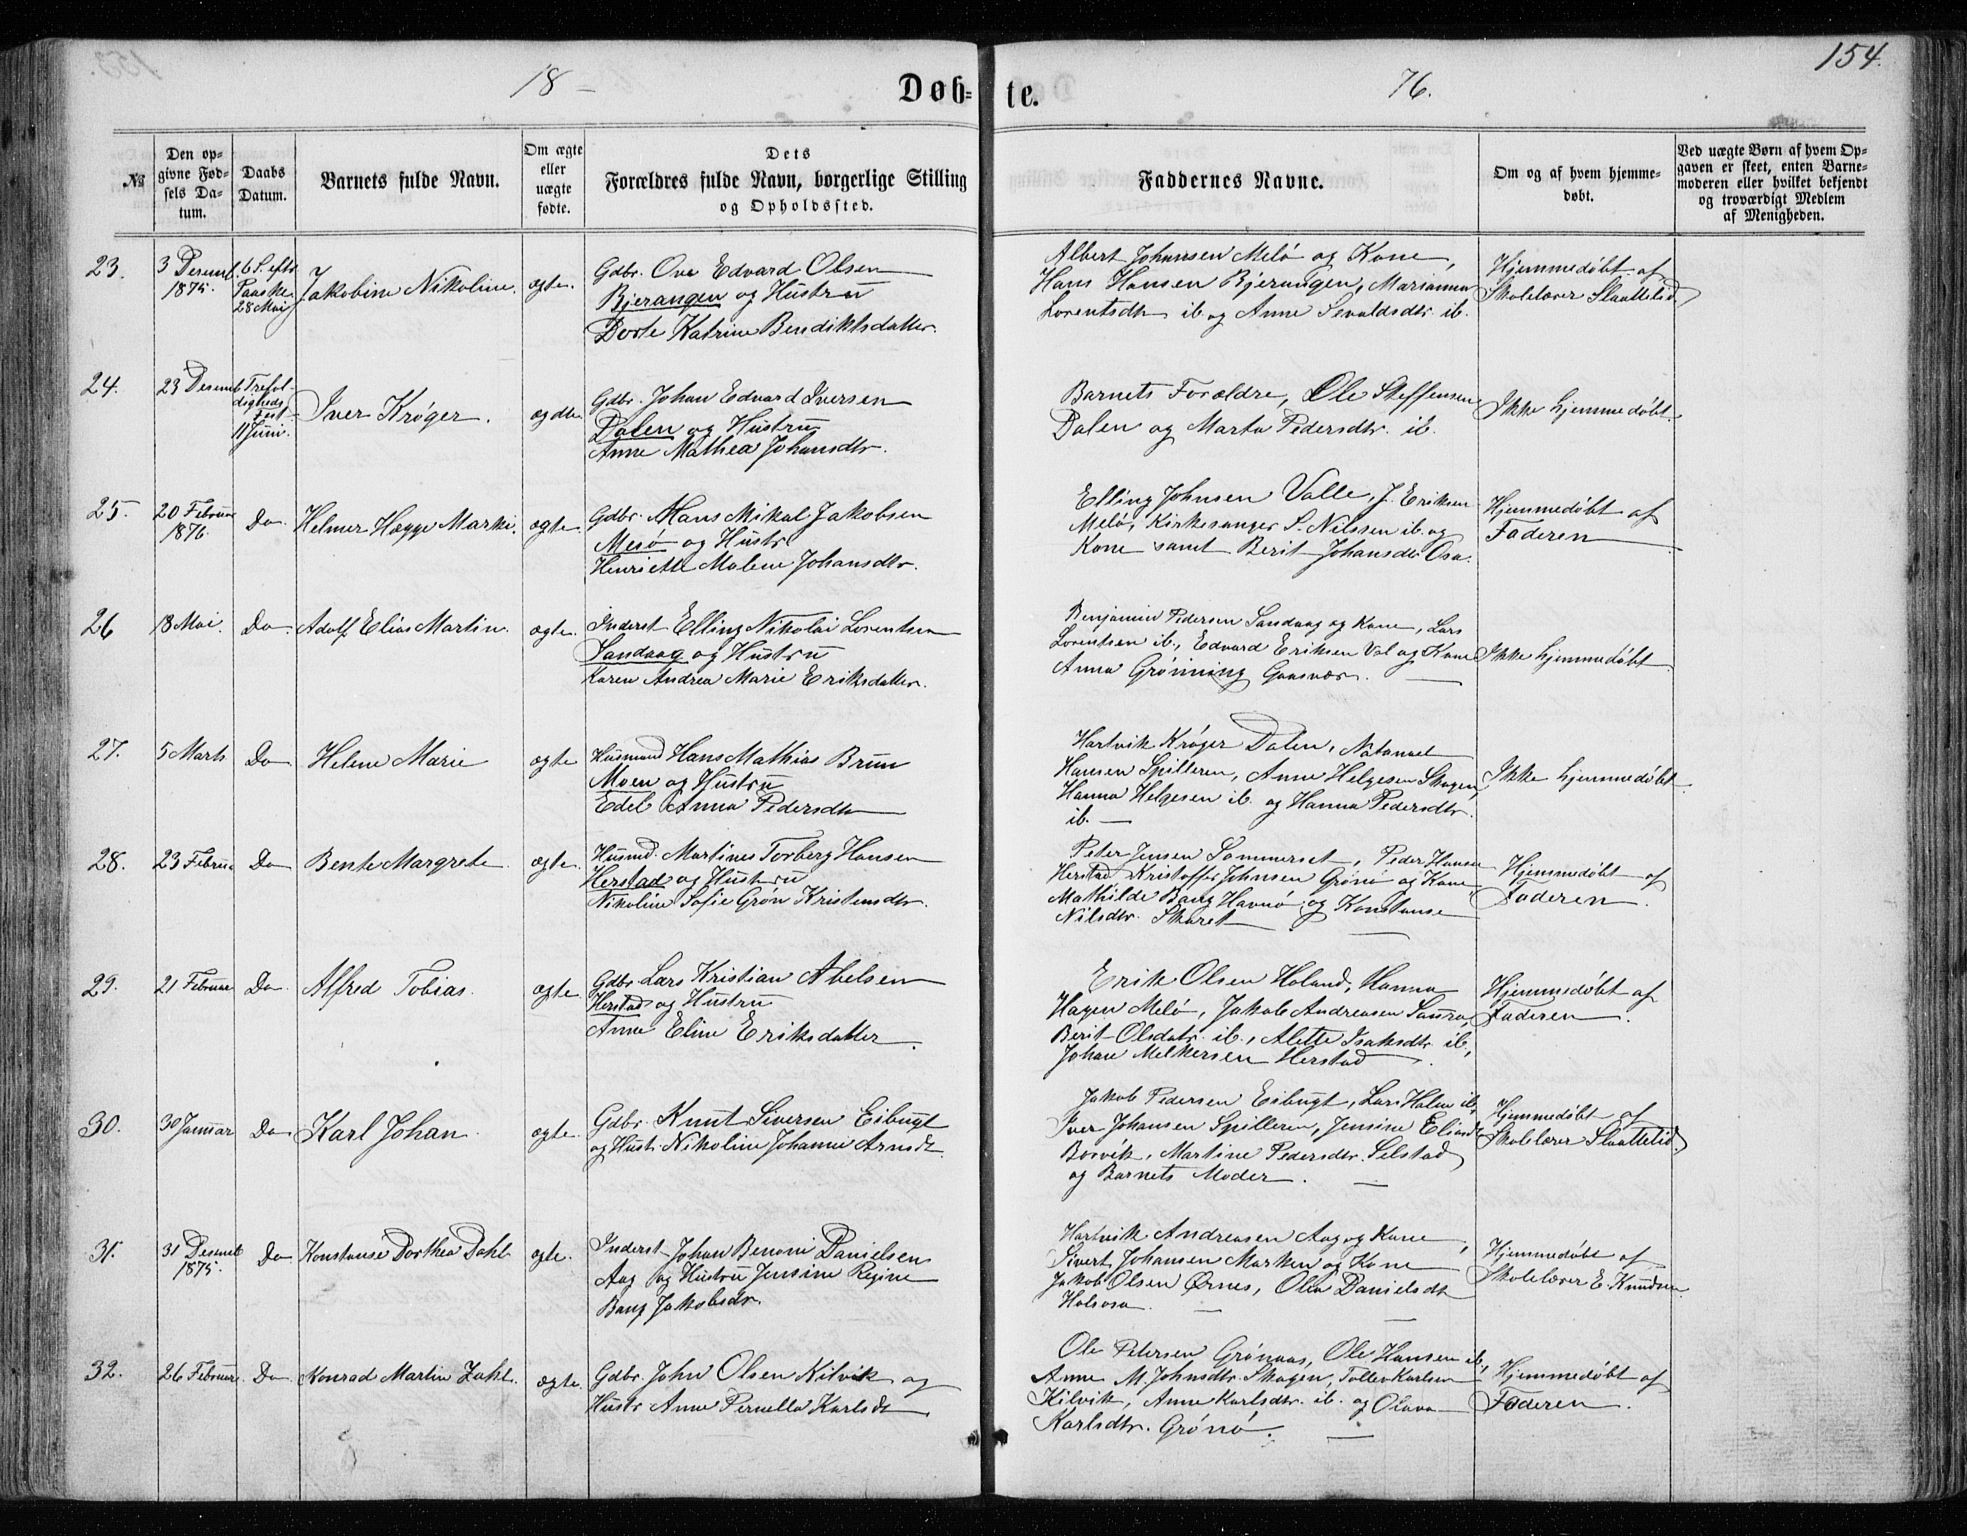 154.
18 — Døb= te. 76.
№
Den op-
givne Fød-
sels Da-
tum.
Daabs
Datum.
Barnets fulde Navn.
Om ægte
eller
uægte
fødte.
Dets
Forældres fulde Navn, borgerlige Stilling
og Opholdssted.
Faddernes Navne.
Om og af hvem hjemme-
døbt.
Ved uægte Børn af hvem Op-
gaven er skeet, enten Barne-
moderen eller hvilket bekjendt
og troværdigt Medlem
af Menigheden.
23.
3 Desemb.
1875.
6 S. eftr
Paaske
28 Mai
Jakobine Nikoline.
ægte.
Gdbr. Ove Edvard Olsen
Bjerangen og Hustru
Dorte Katrine Bendiktsdatter.
Albert Johnsen Melö og Kone,
Hans Hansen Bjerangen, Marianna
Lorentsdtr ib og Anne Sevaldsdtr ib.
Hjemmedöbt af
Skolelærer Slaattelid
24.
23 Desemb
Trefol-
digheds
Fest
11 Juni.
Iver Kröger.
ægte.
Gdbr. Johan Edvard Iversen
Dalen og Hustru
Anne Mathea Johansdtr.
Barnets Forældre, Ole Steffensen
Dalen og Marta Pedersdtr. ib.
Ikke hjemmedöbt.
25.
20 Februar
1876.
Do
Helmer Hegge Marki.
ægte.
Gdbr. Hans Mikal Jakobsen
Mesö og Hustr.
Henriette Malene Johansdtr.
Elling Johnsen Valle, J. Eriksen
Melö, Kirkesanger S. Nilssen ib. og
Kone samt Berit Johansdtr Osa.
Hjemmedöbt af
Faderen
26
18 Mai.
Do.
Adolf Elias Martin.
ægte.
Inderst Elling Nikolai Lorentsen
Sandaag og Hustru
Karen Andrea Marie Eriksdatter.
Benjamin Pedersen Sandaag og Kone, Lars
Lorentsen ib., Edvard Eriksen Val og Kone
Anna Grönning Gaasvær.
Ikke hjemmedöbt
27.
5 Marts
Do
Helene Marie
ægte
Husmand Hans Mathias Brun
Moen og Hustru
Edel Anna Pedersdtr
Hartvik Kröger Dalen, Natanael
Hansen Spilleren, Anne Helgesen Skagen,
Hanna Helgesen ib. og Hanna Pedersdtr.
ib. —
Ikke hjemmedöbt.
28.
23 Februar
Do
Bente Margrete
ægte.
Husmd. Martines Torberg Hansen
Herstad og Hustru
Nikoline Sofie Grön Kristensdtr.
Peter Jensen Sommerset, Peder Hansen
Herstad Kristoffer Johnsen Grönö og Kone
Mathilde Bang Havnö og Konstanse
Nilsdtr. Skaret
Hjemmedöbt af
Faderen.
29.
21 Februar
Do
Alfred Tobias.
ægte.
Gdbr Lars Kristian Abelsen
Herstad og Hustru
Anne Eline Eriksdatter.
Erik Olsen Holand, Hanna
Hagen Melö, Jakob Andreasen Saura,
Berit Olsdatr. ib., Alette Isaksdtr. ib,
Johan Melkersen Herstad.
Hjemmedöbt af
Faderen.
30.
30 Januar
Do
Karl Johan
ægte.
Gdbr. Knut Siversen Eibugt
og Hust. Nikoline Johanne Arnsdt.
Jakob Pedersen Eibugt, Lars Holm ib,
Iver Johansen Spilleren, Jensine Eliasdt
Borvik, Martine Pedersdtr. Selstad
og Barnets Moder.
Hjemmedöbt af
Skolelærer Slaattelid.
31.
31 Desmb
1875.
Do
Konstanse Dorthea Dahl
ægte.
Inderst Johan Benoni Danielsen
Aag og Hustru Jensine Regine
Bang Jakobsdr.
Hartvik Andreasen Aag og Kone,
Sivert Johansen Marken og Kone
Jakob Olsen Ørnes, Olea Danielsdtr
Halsosa.
Hjemmedöbt af
Skolelærer E. Knudsen
32.
26 Februar.
Do
Konrad Martin Zahl.
ægte.
Gdbr. John Olsen Kilvik og
Hustr Anne Pernella Karlsdt
Ole Petersen Grönaas, Ole Hansen ib,
Anne M. Johnsdtr. Skagen, Tollev Karlsen
Kilvik, Anne Karlsdtr. ib. og Olava
Karlsdtr. Grönö.
Hjemmedöbt af
Faderen.